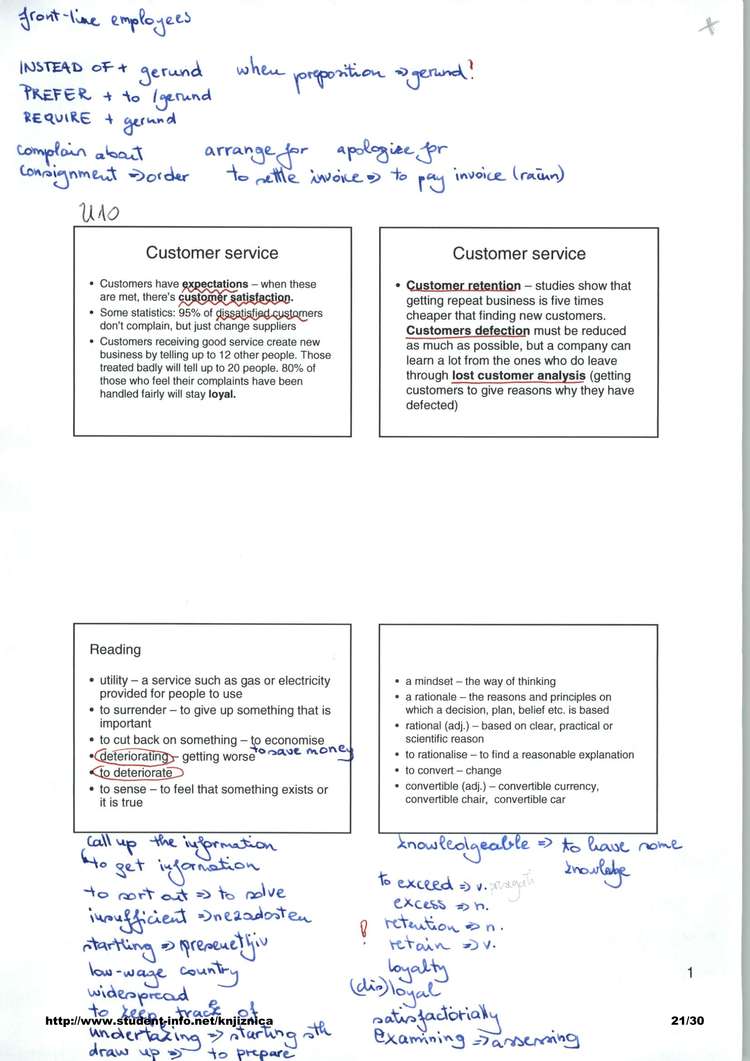 front-line employees
INSTEAD OF + gerund when preposition => gerund!
PREFER + to / gerund
REQUIRE + gerund
complain about arrange for apologize for
consignment => order to settle invoice => to pay invoice (račun)
U10
Customer service
• Customers have expectations – when these
are met, there's customer satisfaction.
• Some statistics: 95% of dissatisfied customers
don't complain, but just change suppliers
• Customers receiving good service create new
business by telling up to 12 other people. Those
treated badly will tell up to 20 people. 80% of
those who feel their complaints have been
handled fairly will stay loyal.
Customer service
• Customer retention – studies show that
getting repeat business is five times
cheaper that finding new customers.
Customers defection must be reduced
as much as possible, but a company can
learn a lot from the ones who do leave
through lost customer analysis (getting
customers to give reasons why they have
defected)
Reading
• utility – a service such as gas or electricity
provided for people to use
• to surrender – to give up something that is
important
• to cut back on something – to economise
to save money
• deteriorating - getting worse
• to deteriorate
• to sense – to feel that something exists or
it is true
• a mindset – the way of thinking
• a rationale – the reasons and principles on
which a decision, plan, belief etc. is based
• rational (adj.) – based on clear, practical or
scientific reason
• to rationalise – to find a reasonable explanation
• to convert – change
• convertible (adj.) – convertible currency,
convertible chair, convertible car
call up the information
to get information
to sort out => to solve
insufficient => nezadosten
startling => presenetljiv
low-wage country
widespread
to keep track of
undertaking => starting sth
draw up => to prepare
knowledgeable => to have some
knowledge
to exceed => v.
excess => n.
! retention => n.
retain => v.
loyalty
(dis)loyal
satisfactorially
examining => assessing
1
http://www.student-info.net/knjiznica
21/30